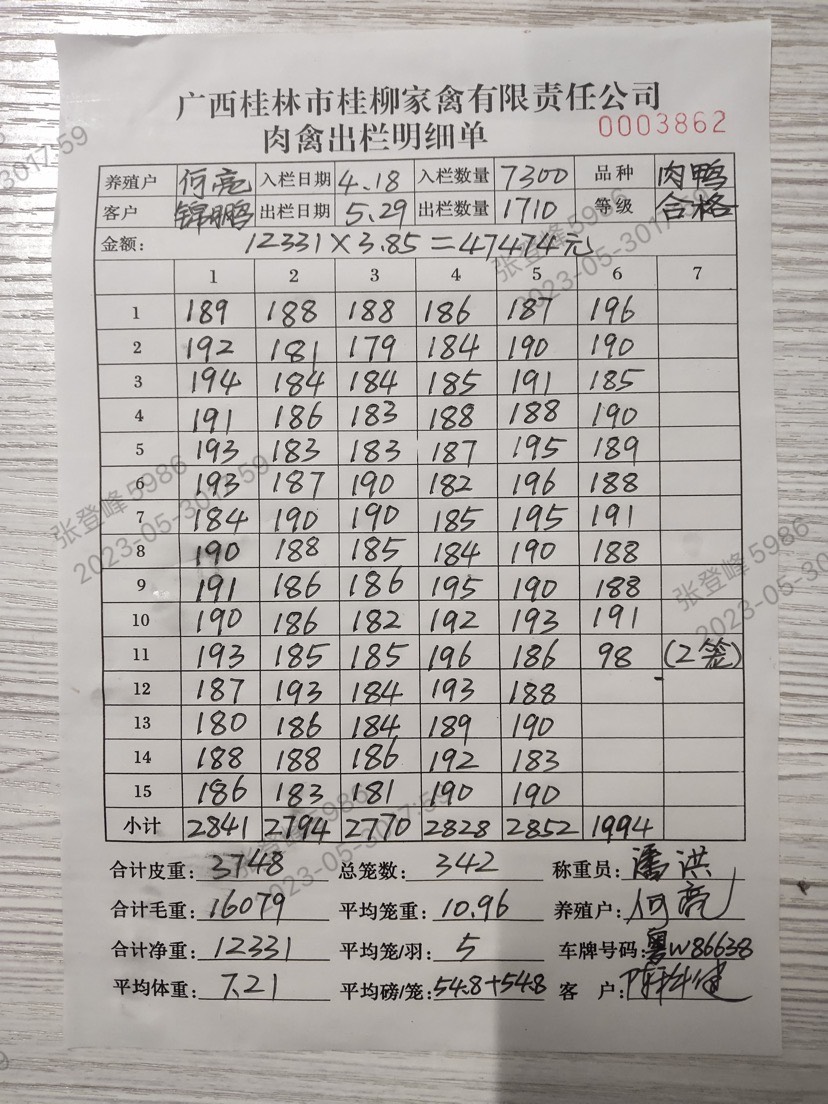 广西桂林市桂柳家禽有限责任公司
肉禽出栏明细单 0003862
养殖户 何亮 入栏日期 4.18 入栏数量 7300 品种 肉鸭
客户 锦鹏 出栏日期 5.29 出栏数量 1710 等级 合格
金额: 12331×3.85=47474元
1 2 3 4 5 6 7
1 189 188 188 186 187 196
2 192 181 179 184 190 190
3 194 184 184 185 191 185
4 191 186 183 188 188 190
5 193 183 183 187 195 189
6 193 187 190 182 196 188
7 184 190 190 185 195 191
8 190 188 185 184 190 188
9 191 186 186 195 190 188
10 190 186 182 192 193 191
11 193 185 185 196 186 98 (2笼)
12 187 193 184 193 188
13 180 186 184 189 190
14 188 188 186 192 183
15 186 183 181 190 190
小计 2841 2794 2770 2828 2852 1994
合计皮重: 3748 总笼数: 342 称重员: 潘洪
合计毛重: 16079 平均笼重: 10.96 养殖户: 何亮
合计净重: 12331 平均笼/羽: 5 车牌号码: 粤W86638
平均体重: 7.21 平均磅/笼: 54.8+54.8 客户:
张登峰5986
2023-05-3017:59